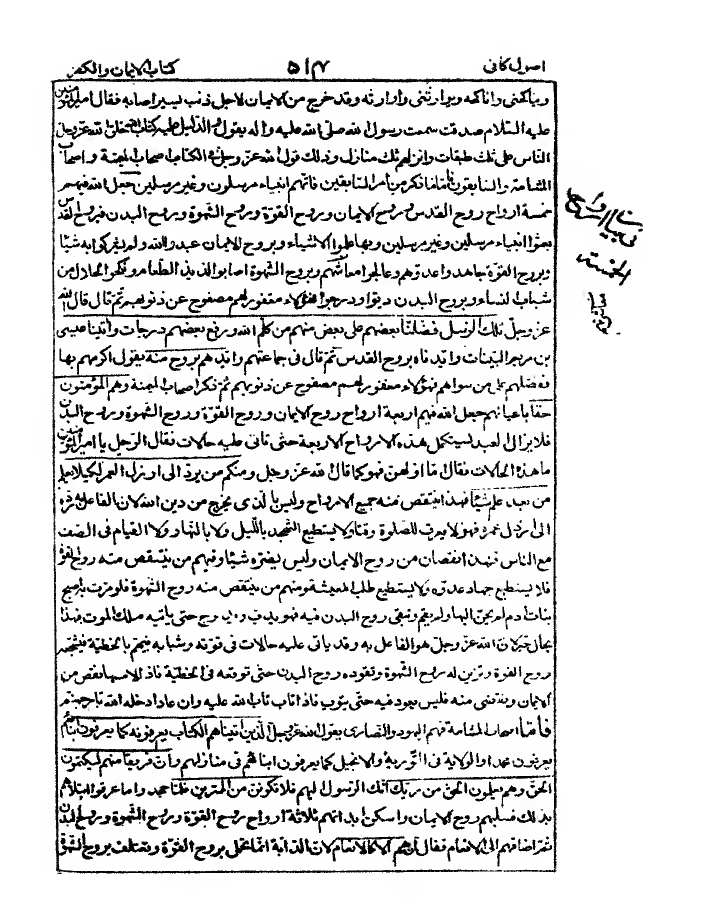 اصول كافى ۵۱۴ كتاب الايمان والكفر
ويناكحنى واناكحه ويوارثنى واوارثه وقد خرج من الايمان لاجل ذنب يسير اصابه فقال امير المؤمنين
عليه السّلام صدقت سمعت رسول الله صلّى الله عليه واله يقول والدليل عليه كتاب الله خلق الله عزّ وجل
الناس على ثلث طبقات وانزلهم ثلث منازل وذلك قول الله عزّ وجل فى الكتاب اصحاب الميمنة واصحاب
المشامة والسابقون فامّا ما ذكر من امر السّابقين فانّهم انبياء مرسلون وغير مرسلين جعل الله فيهم
خمسة ارواح روح القدس وروح الايمان وروح القوّة وروح الشهوة وروح البدن فبروح القدس
بعثوا انبياء مرسلين وغير مرسلين وبها علموا الاشياء وبروح الايمان عبدوا الله ولم يشركوا به شيئا
وبروح القوّة جاهدوا عدوّهم وعالجوا معاشهم وبروح الشهوة اصابوا لذيذ الطعام ونكحوا الحلال من
شباب النساء وبروح البدن دبّوا ودرجوا فهؤلاء مغفور لهم مصفوح عن ذنوبهم ثمّ قال قال الله
عزّ وجلّ تلك الرّسل فضّلنا بعضهم على بعض منهم من كلّم الله ورفع بعضهم درجات واتينا عيسى
بن مريم البيّنات وايّدناه بروح القدس ثمّ قال فى جماعتهم وايّدهم بروح منه يقول اكرمهم بها
ففضلهم على من سواهم فهؤلاء مغفور لهم مصفوح عن ذنوبهم ثمّ ذكر اصحاب الميمنة وهم المؤمنون
حقّا باعيانهم جعل الله فيهم اربعة ارواح روح الايمان وروح القوّة وروح الشهوة وروح البدن
فلا يزال العبد يستكمل هذه الارواح الاربعة حتى تاتى عليه حالات فقال الرّجل يا امير المؤمنين
ما هذه الحالات فقال امّا اوليهن فهو كما قال الله عزّ وجل ومنكم من يردّ الى ارذل العمر لكيلا يعلم
من بعد علم شيئا فهذا ينتقص منه جميع الارواح وليس بالّذى يخرج من دين الله لان الفاعل به ردّه
الى ارذل عمره فهو لا يعرف للصلوة وقتا ولا يستطيع التهجد بالليل ولا بالنهار ولا القيام فى الصف
مع الناس فهذا نقصان من روح الايمان وليس يضرّه شيئا وفيهم من ينتقص منه روح القوّة
فلا يستطيع جهاد عدوّه ولا يستطيع طلب المعيشة ومنهم من ينتقص منه روح الشهوة فلو مرّت به اصبح
بنات ادم لم يحنّ اليها ولم يقم وتبقى روح البدن فيه فهو يدبّ ويدرج حتى ياتيه ملك الموت فهذا
بحال خير لان الله عزّ وجل هو الفاعل به وقد ياتى عليه حالات فى قوّته وشبابه فيهمّ بالخطيئة فيشجّعه
روح القوة وتزيّن له روح الشهوة وتقوده روح البدن حتى توقعه فى الخطيئة فاذا لامسها نقص من
الايمان وتفصّى منه فليس يعود فيه حتى يتوب فاذا تاب تاب الله عليه وان عاد ادخله الله نار جهنّم
فامّا اصحاب المشامة فهم اليهود والنصارى يقول الله عزّ وجل الّذين اتيناهم الكتاب يعرفونه كما يعرفون ابناءهم
يعرفون محمدا والولاية فى التّورية والانجيل كما يعرفون ابناءهم فى منازلهم وانّ فريقا منهم ليكتمون
الحقّ وهم يعلمون الحق من ربّك انّك الرّسول اليهم فلا تكوننّ من الممترين فلمّا جحدوا ما عرفوا ابتلاهم
بذلك فسلبهم روح الايمان واسكن ابدانهم ثلاثة ارواح روح القوّة وروح الشّهوة وروح البدن
ثمّ اضافهم الى الانعام فقال ان هم الا كالانعام لان الدّابة انّما تحمل بروح القوّة وتعتلف بروح الشهوة